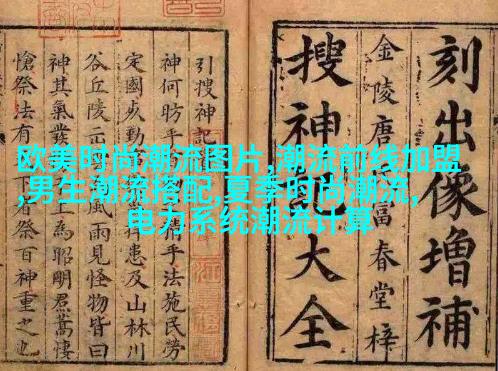 欧美时尚潮流图片,潮流前线加盟
,男生潮流搭配,夏季时尚潮流,
电力系统潮流计算
刻出像增補
金陵唐富春堂梓
搜神記大全
引搜神記
神何昉乎手法施民勞
定國勤捍患及山林川
谷丘陵風雨見怪物皆曰
神其氣發上為昭明焄蒿悽
愴祭法有下者祭百神重之也